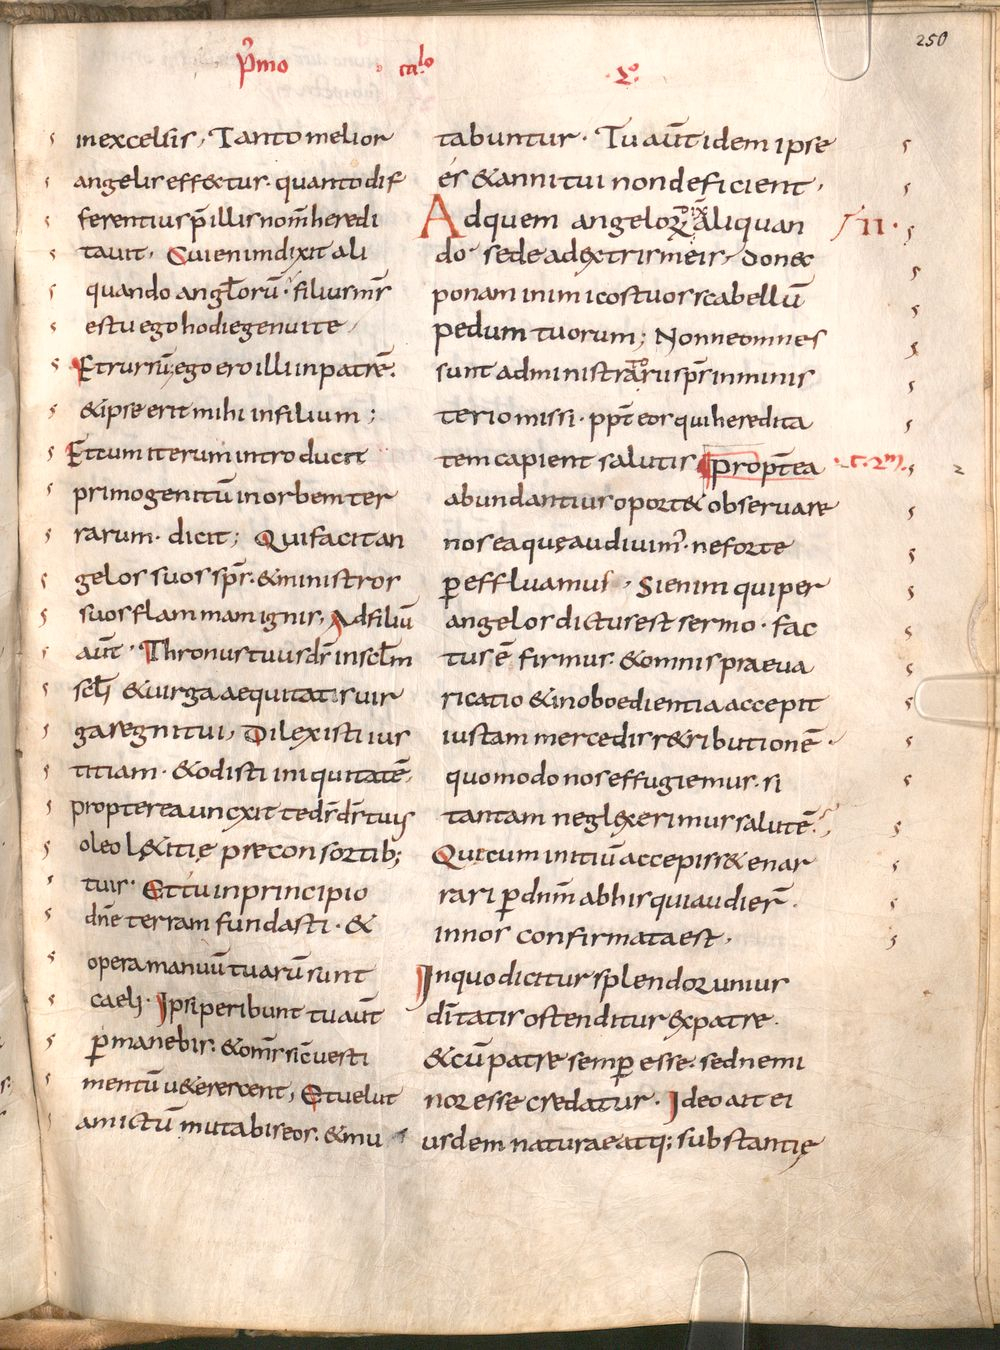 250
p̄mo calo
inexcelsis, Tanto melior
angelis eff&ctus. quanto dif
ferentius p̄ illis nom̄ heredi
tauit. Cui enim dixit ali
quando anglorū. filius m̄s
es tu ego hodie genui te,
Et rursū, ego ero illi in patrē.
& ipse erit mihi in filium;
Et cum iterum introducit
primogenitū in orbem ter
rarum. dicit; Qui facit an
gelos suos sp̄s. & ministros
suos flammam ignis, Ad filiū
aūt. Thronus tuus d̄s in sclm̄
scli & uirga aequitatis uir
ga regni tui, Dilexisti ius
titiam. & odisti iniquitatē,
propterea uncxit te d̄s d̄s tuus
oleo l&itię prę consortib;
tuis. Et tu in principio
dn̄e terram fundasti. &
opera manuū tuarū sunt
caeli. Ipsi peribunt tu aūt
p̄manebis. & om̄s sic̄ uesti
mentū u&erescent, Et uelut
amictū mutabis eos. & mu
tabuntur. Tu aūt idem ipse
és & anni tui non deficient,
Ad quem angelorū dix̄ aliquan II.
do sede a dextris meis, Donec
ponam inimicos tuos scabellū
pedum tuorum; Nonne omnes
sunt administratorii sp̄s in minis
terio missi. ppt̄ eos qui heredita
tem capient salutis, Propt̄ea
abundantius oport& obseruare
nos ea quę audiuim'. ne forte
p̄effluamus, Si enim qui per
angelos dictus est sermo. fac
tus ē firmus. & omnis praeua
ricatio & inoboedientia accepit
iustam mercedis r&ributionē.
quomodo nos effugiemus. si
tantam neglexerimus salutē.
Quę cum initiū accepiss& enar
rari p̄ dn̄m ab his qui audier̄.
in nos confirmata est,
In quo dicitur splendor unius
d̄itatis ostenditur & ex patre.
& cū patre semp̄ esse. sed nemi
nos esse credatur. Ideo ait ei
usdem naturae atq; substantię